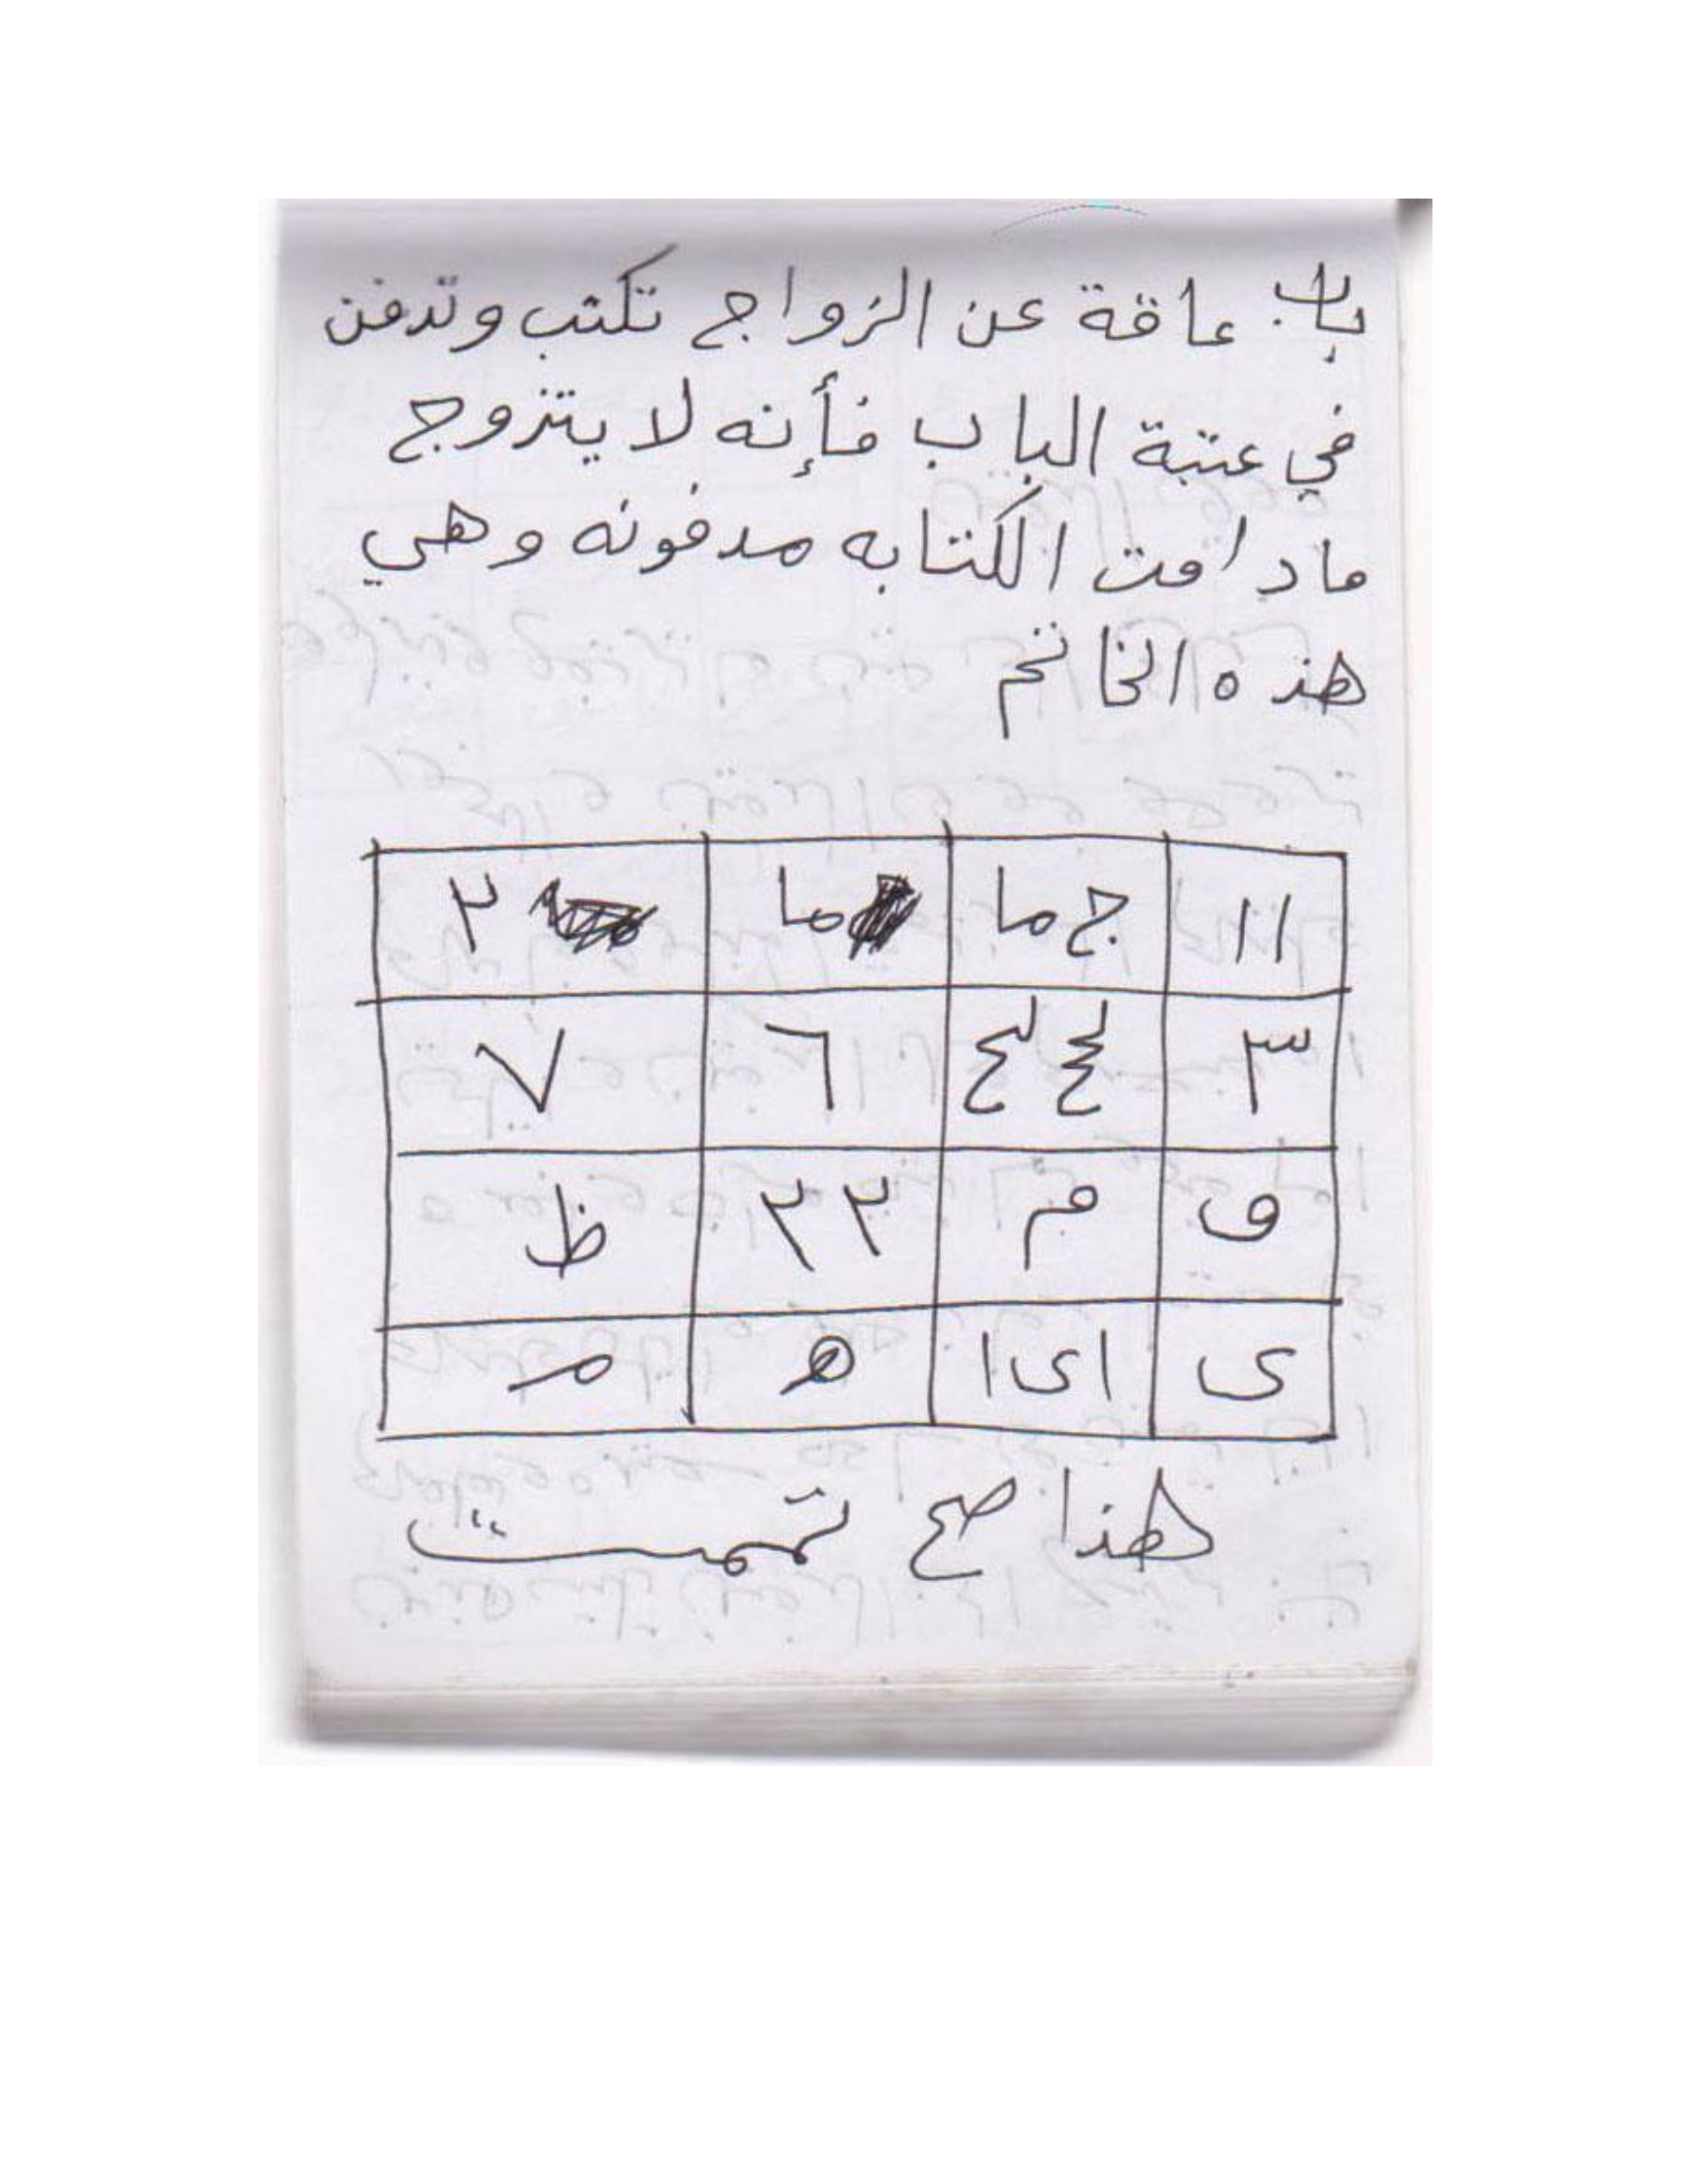 باب عاقة عن الزواج تكتب وتدفن
في عتبة الباب فأنه لا يتزوج
مادامت الكتابه مدفونه وهي
هذه الخاتم
١١ ج ما ما ٢
٣ ٦ ٧
و م ٢ ٢ ظ
ى ا ى ا ه م
هذا صح تممت